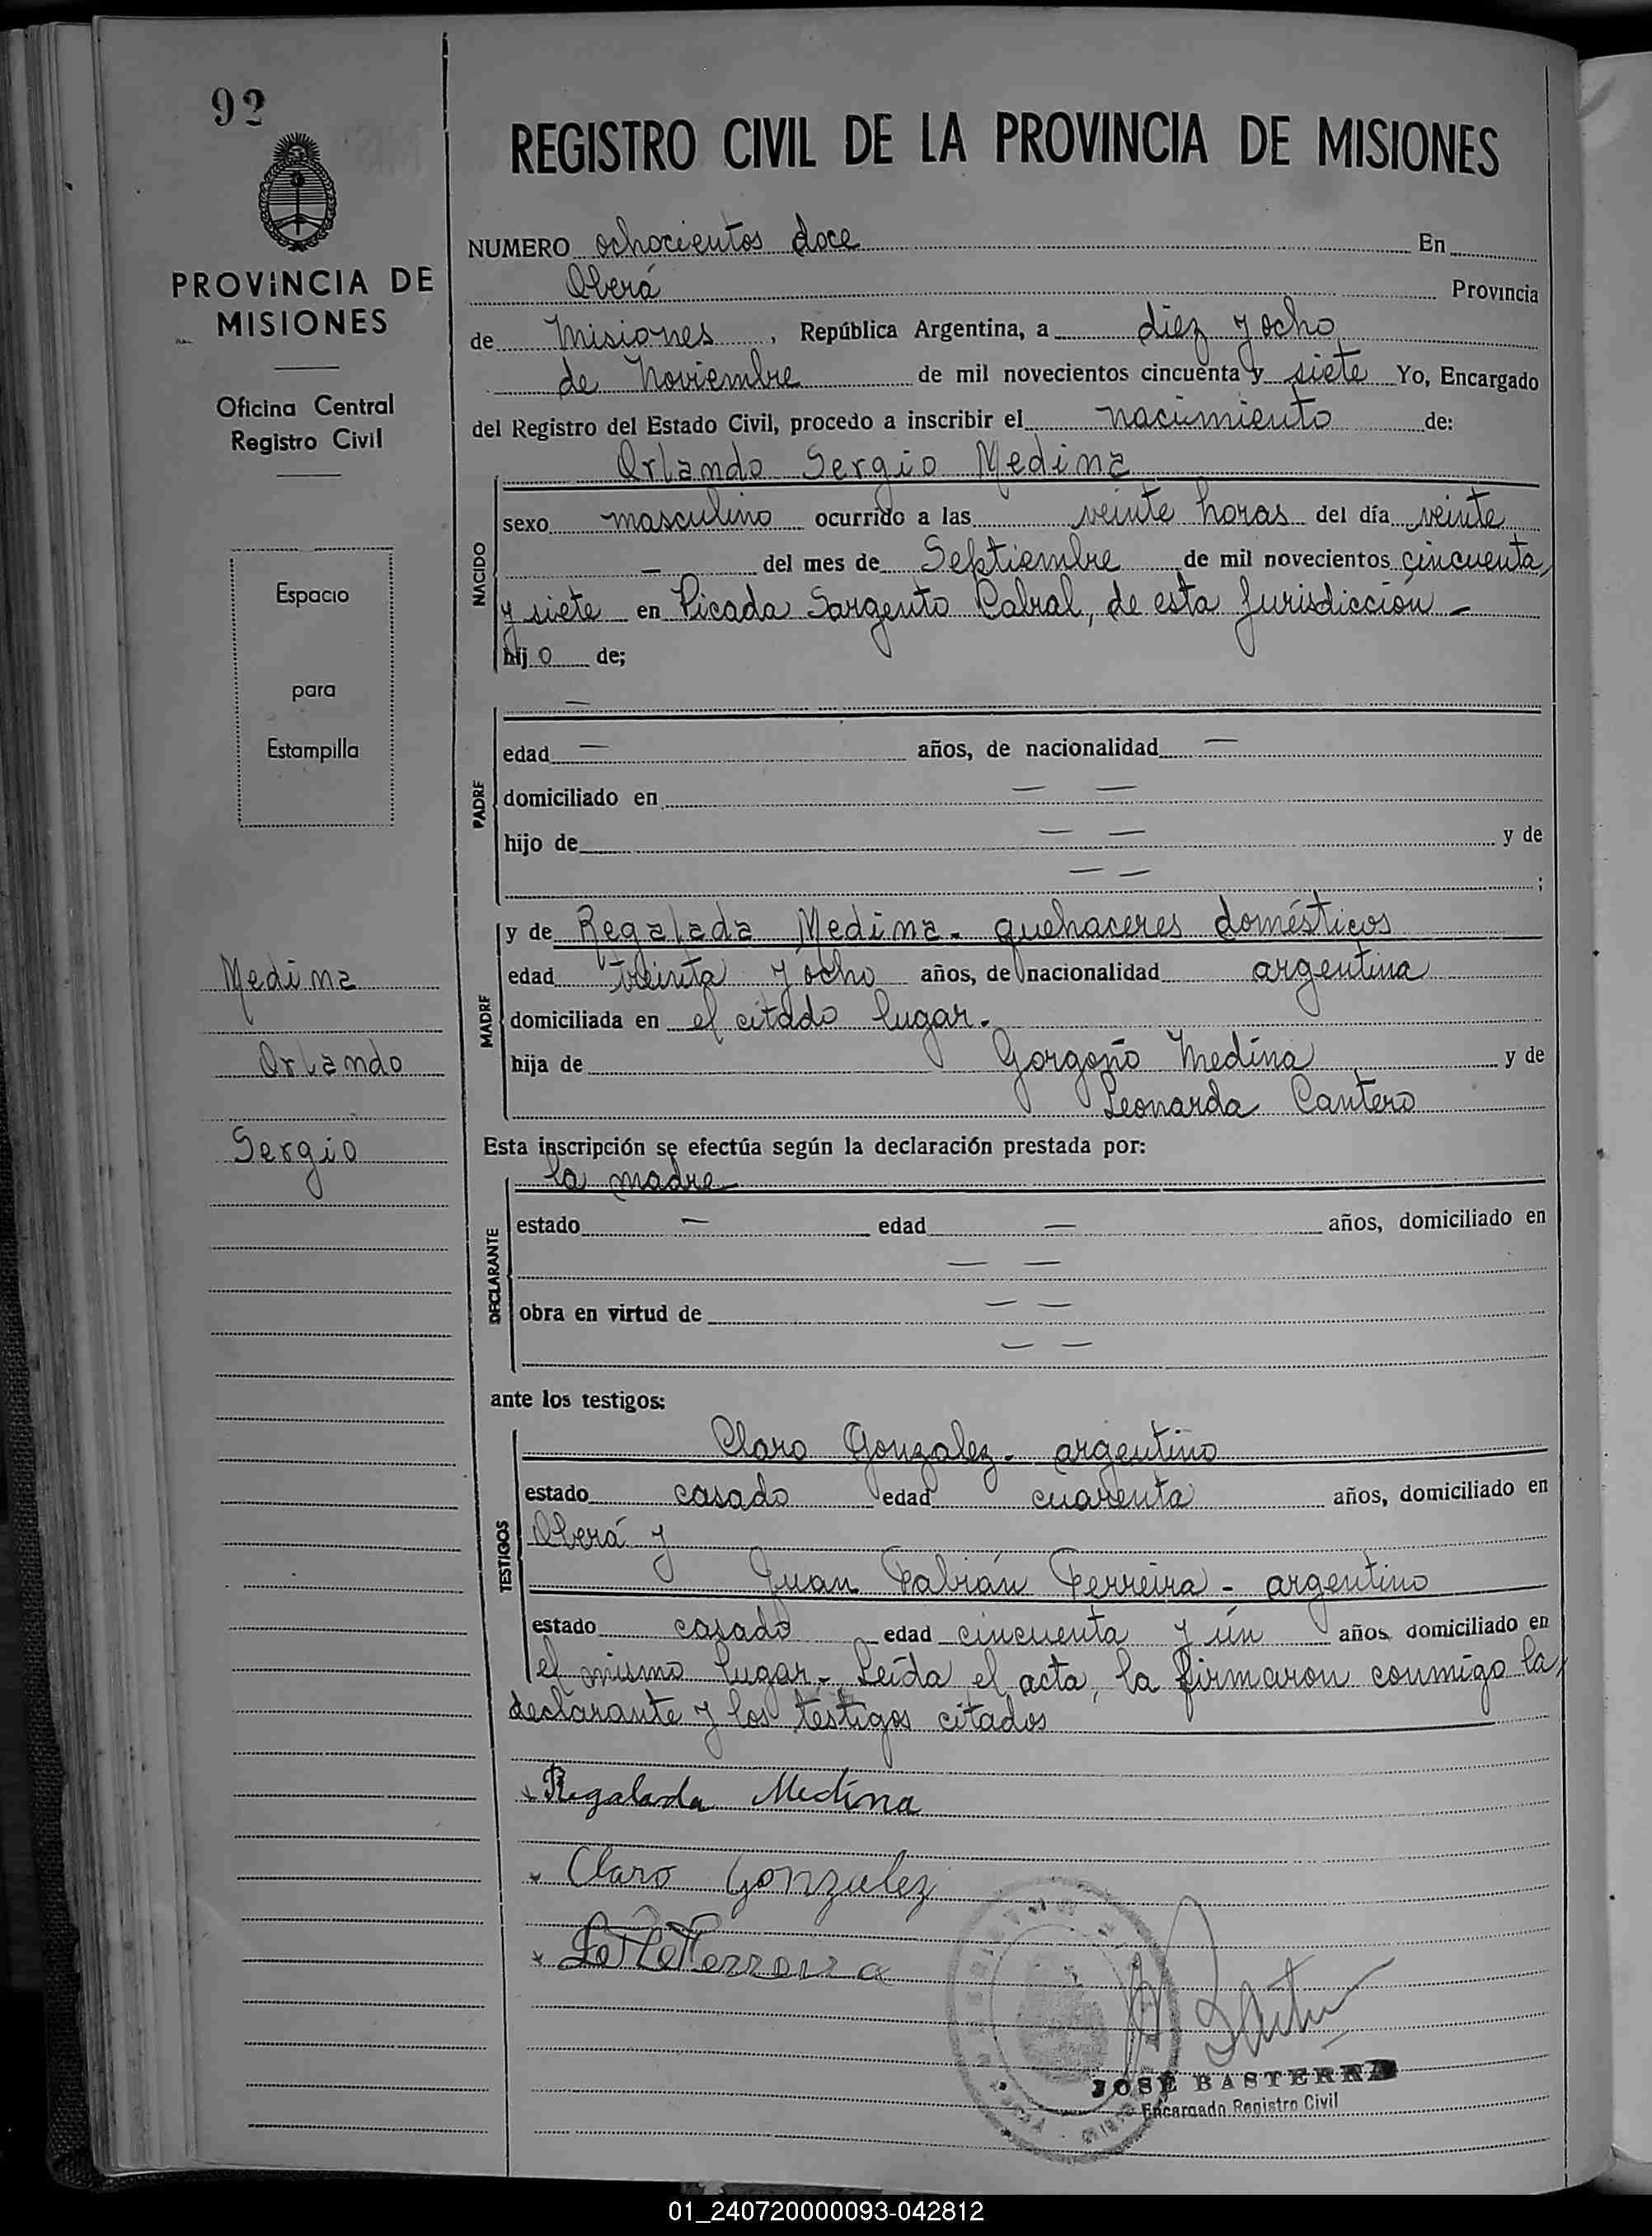 92
PROVINCIA DE
MISIONES
Oficina Central
Registro Civil
Espacio
para
Estampilla
Medina
Orlando
Sergio
REGISTRO CIVIL DE LA PROVINCIA DE MISIONES
NUMERO ochocientos doce En
Oberá Provincia
de Misiones, República Argentina, a diez y ocho
de Noviembre de mil novecientos cincuenta y siete Yo, Encargado
del Registro del Estado Civil, procedo a inscribir el nacimiento de:
Orlando Sergio Medina
NACIDO
sexo masculino ocurrido a las veinte horas del día veinte
— del mes de Septiembre de mil novecientos cincuenta
y siete en Picada Sargento Cabral, de esta Jurisdicción -
hijo de;
PADRE
—
edad — años, de nacionalidad —
domiciliado en — —
hijo de — — y de
— — ;
MADRE
y de Regalada Medina - quehaceres domésticos
edad treinta y ocho años, de nacionalidad argentina
domiciliada en el citado lugar.
hija de Gorgoño Medina y de
Leonarda Cantero
Esta inscripción se efectúa según la declaración prestada por:
DECLARANTE
la madre
estado — edad — años, domiciliado en
— —
obra en virtud de — —
— —
ante los testigos:
TESTIGOS
Claro Gonzalez - argentino
estado casado edad cuarenta años, domiciliado en
Oberá y
Juan Fabián Ferreira - argentino
estado casado edad cincuenta y ún años domiciliado en
el mismo lugar - Leída el acta, la firmaron conmigo la
declarante y los testigos citados
Regalada Medina
Claro Gonzalez
Ferreira
JOSÉ BASTERRA
Encargado Registro Civil
01_240720000093-042812